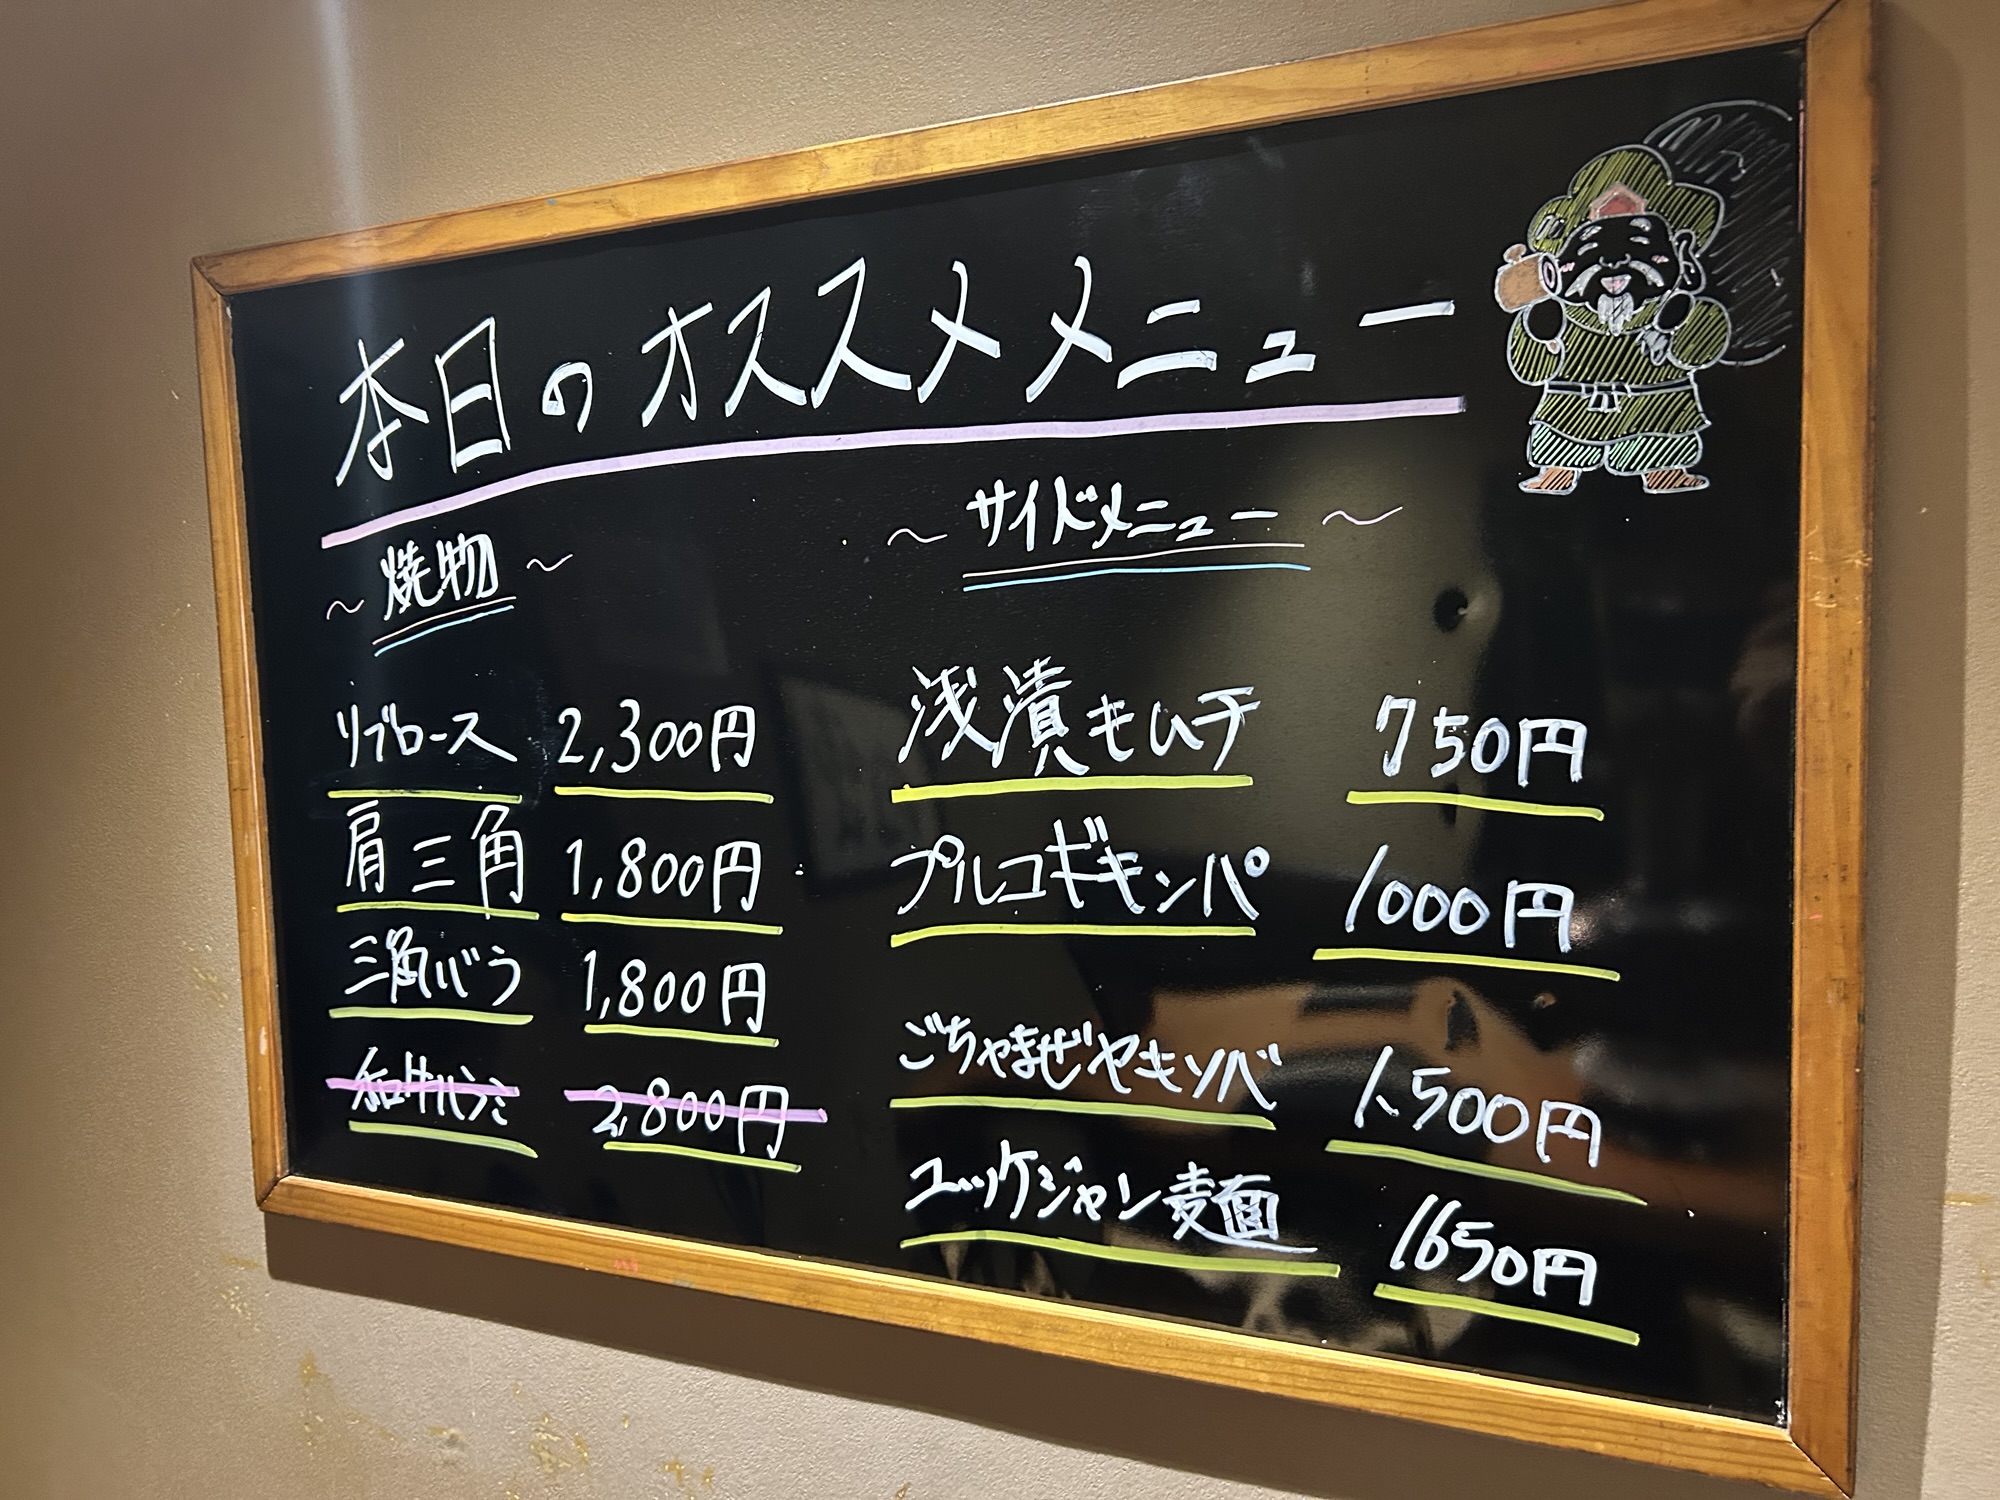 本日のオススメメニュー
～焼物～
リブロース 2,300円
肩三角 1,800円
三角バラ 1,800円
和牛ハラミ 2,800円
～サイドメニュー～
浅漬キムチ 750円
プルコギキンパ 1000円
ごちゃまぜヤキソバ 1,500円
ユッケジャン麺 1650円